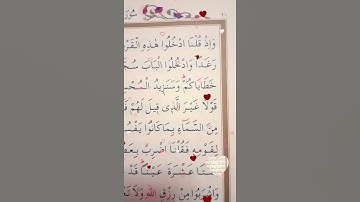 سُورَ
وَاِذْ قُلْنَا ادْخُلُوا هٰذِهِ الْقَرْ
رَغَدًا وَادْخُلُوا الْبَابَ سُجَّ
خَطَايَاكُمْ وَسَنَزِيدُ الْمُحْسِ
قَوْلًا غَيْرَ الَّذِى قِيلَ لَهُمْ فَ
مِنَ السَّمَٓاءِ بِمَا كَانُوا يَفْسُ
لِقَوْمِهِ فَقُلْنَا اضْرِبْ بِعَصَ
نَتَا عَشْرَةَ عَيْنًا قَدْ
وَاشْرَبُوا مِنْ رِزْقِ اللّٰهِ وَلَا تَعْ